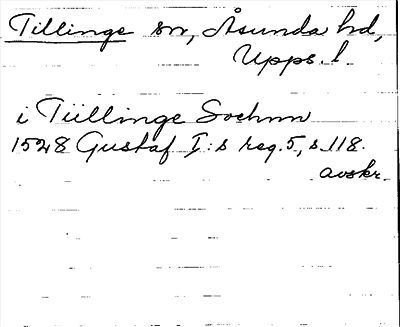 Tillinge sn, Åsunda hd,
Upps. l.
i Tüllinge Sochnn
1528 Gustaf I:s reg. 5, s. 118.
avskr.